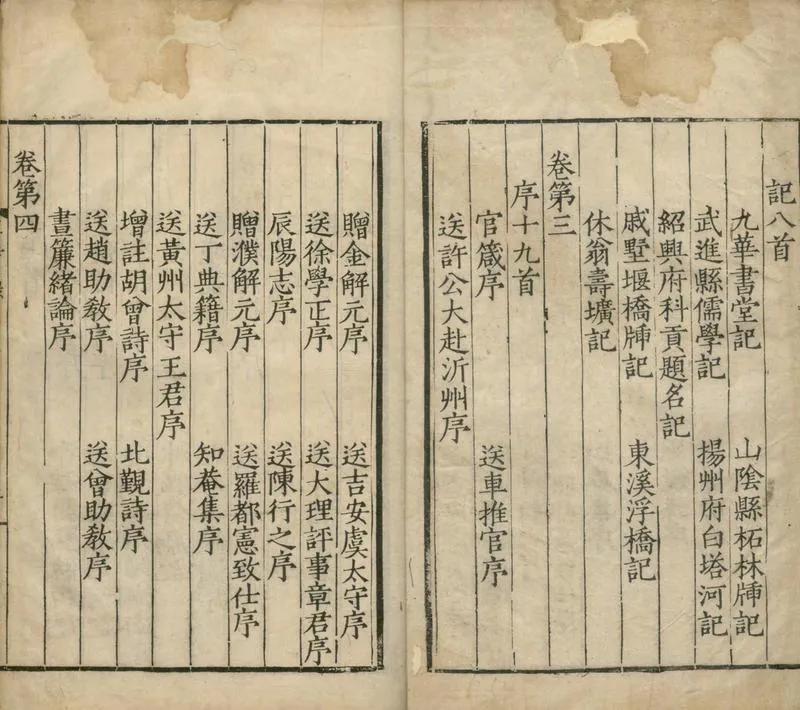 記八首
九華書堂記 山陰縣柘林牐記
武進縣儒學記 揚州府白塔河記
紹興府科貢題名記
戚墅堰橋牐記 東溪浮橋記
休翁壽壙記
卷第三
序十九首
官箴序 送車推官序
送許公大赴沂州序
贈金解元序 送吉安虞太守序
送徐學正序 送大理評事章君序
辰陽志序 送陳行之序
贈濮解元序 送羅都憲致仕序
送丁典籍序 知菴集序
送黃州太守王君序
增註胡曾詩序 北覲詩序
送趙助教序 送曾助教序
晝簾緒論序
卷第四